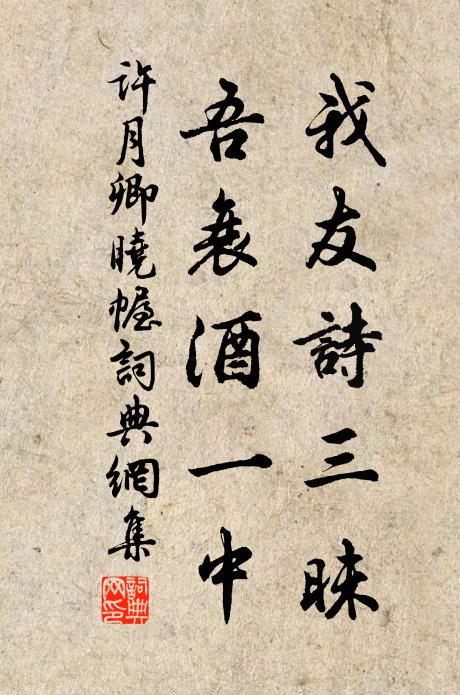 我友詩三昧
吾衰酒一中
許月卿曉幄詞典網集
詞典网印